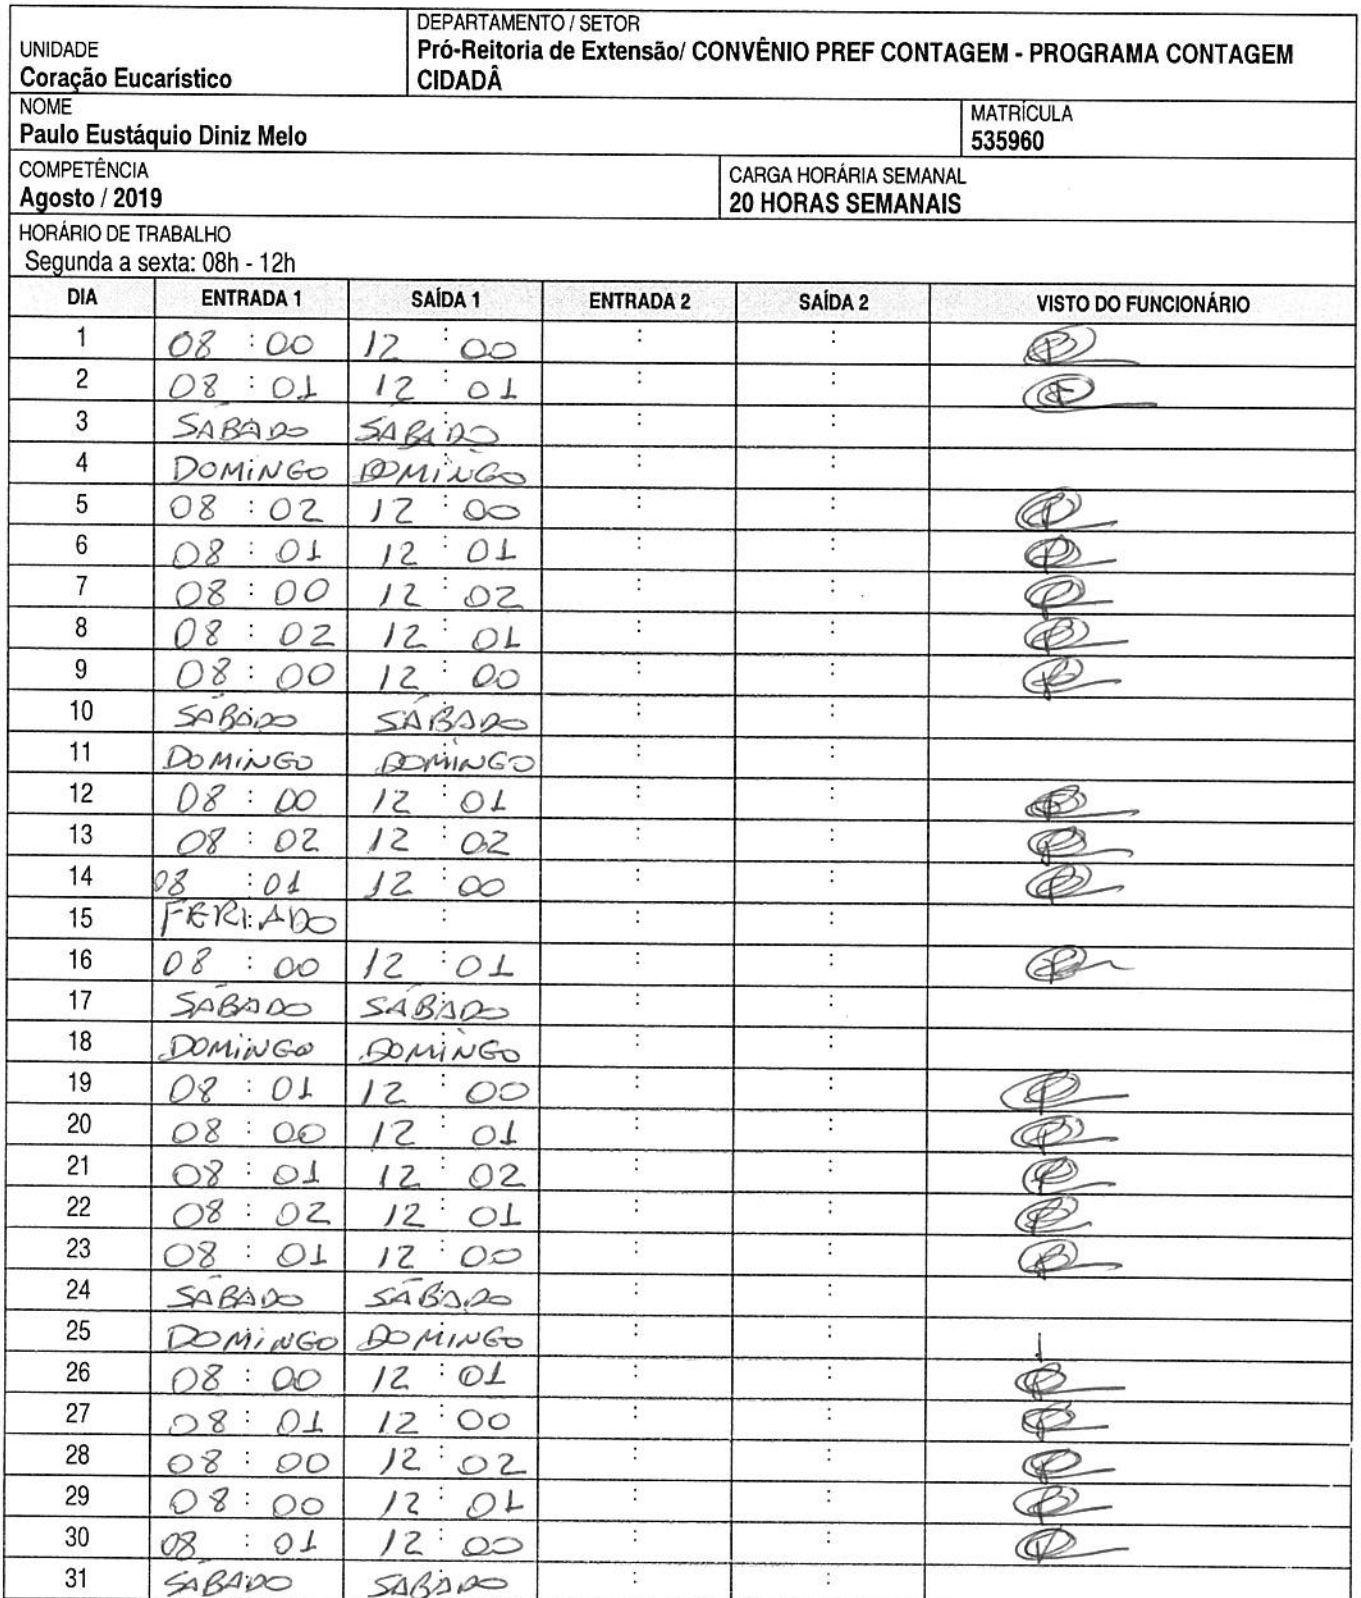 UNIDADE
Coração Eucarístico
DEPARTAMENTO / SETOR
Pró-Reitoria de Extensão/ CONVÊNIO PREF CONTAGEM - PROGRAMA CONTAGEM
CIDADÂ
NOME
Paulo Eustáquio Diniz Melo
MATRÍCULA
535960
COMPETÊNCIA
Agosto / 2019
CARGA HORÁRIA SEMANAL
20 HORAS SEMANAIS
HORÁRIO DE TRABALHO
Segunda a sexta: 08h - 12h
DIA ENTRADA 1 SAÍDA 1 ENTRADA 2 SAÍDA 2 VISTO DO FUNCIONÁRIO
1 08 : 00 12 : 00 : :
2 08 : 01 12 : 01 : :
3 SÁBADO SÁBADO : :
4 DOMINGO DOMINGO : :
5 08 : 02 12 : 00 : :
6 08 : 01 12 : 01 : :
7 08 : 00 12 : 02 : :
8 08 : 02 12 : 01 : :
9 08 : 00 12 : 00 : :
10 SÁBADO SÁBADO : :
11 DOMINGO DOMINGO : :
12 08 : 00 12 : 01 : :
13 08 : 02 12 : 02 : :
14 08 : 01 12 : 00 : :
15 FERIADO : : :
16 08 : 00 12 : 01 : :
17 SÁBADO SÁBADO : :
18 DOMINGO DOMINGO : :
19 08 : 01 12 : 00 : :
20 08 : 00 12 : 01 : :
21 08 : 01 12 : 02 : :
22 08 : 02 12 : 01 : :
23 08 : 01 12 : 00 : :
24 SÁBADO SÁBADO : :
25 DOMINGO DOMINGO : :
26 08 : 00 12 : 01 : :
27 08 : 01 12 : 00 : :
28 08 : 00 12 : 02 : :
29 08 : 00 12 : 01 : :
30 08 : 01 12 : 00 : :
31 SÁBADO SÁBADO : :